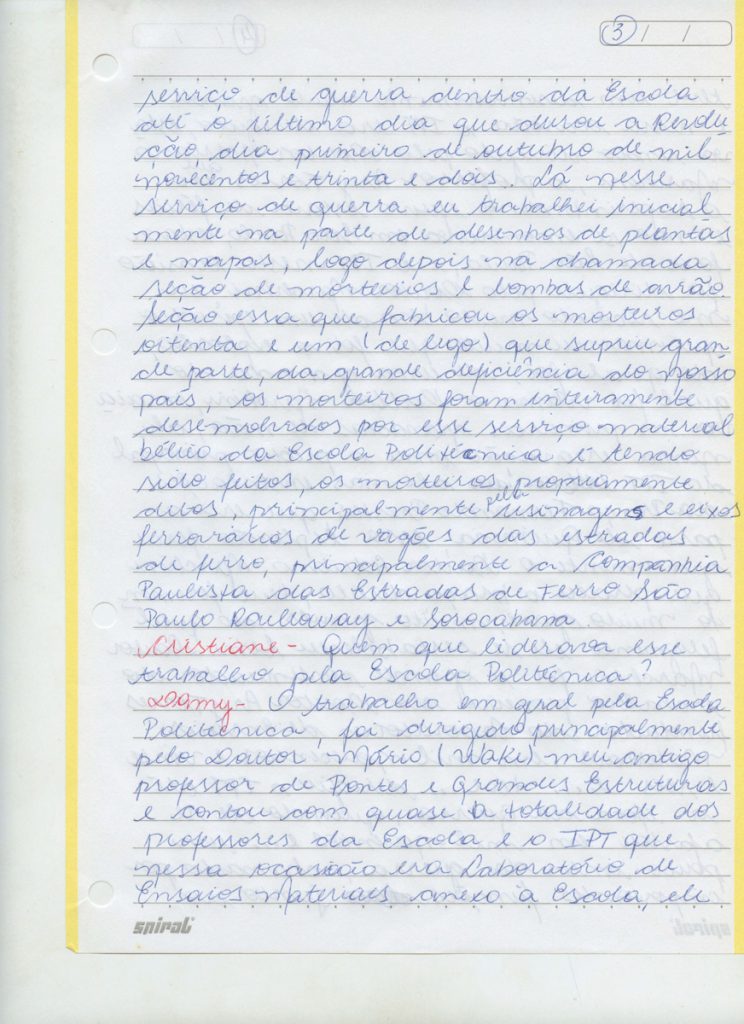 3 / /
serviço de guerra dentro da Escola
até o último dia que durou a Revolu
ção, dia primeiro de outubro de mil
novecentos e trinta e dois. Lá nesse
serviço de guerra eu trabalhei inicial
mente na parte de desenhos de plantas
e mapas, logo depois na chamada
seção de morteiros e bombas de avião.
Seção essa que fabricou os morteiros
oitenta e um (de lego) que supriu gran-
de parte, da grande deficiência do nosso
país, os morteiros foram inteiramente
desenvolvidos por esse serviço material
bélico da Escola Politécnica e tendo
sido feitos, os morteiros propriamente
ditos, principalmente pela usinagens e eixos
ferroviários de vagões das estradas
de ferro, principalmente a Companhia
Paulista das Estradas de Ferro São
Paulo Railloway e Sorocabana
Cristiane - Quem que liderava esse
trabalho pela Escola Politécnica?
Damy - O trabalho em geral pela Escola
Politécnica, foi dirigido principalmente
pelo Doutor Mário (Wake) meu antigo
professor de Pontes e Grandes Estruturas
e contou com quase a totalidade dos
professores da Escola e o IPT que
nessa ocasião era Laboratório de
Ensaios Materiaes anexo à Escola, ele
spiral